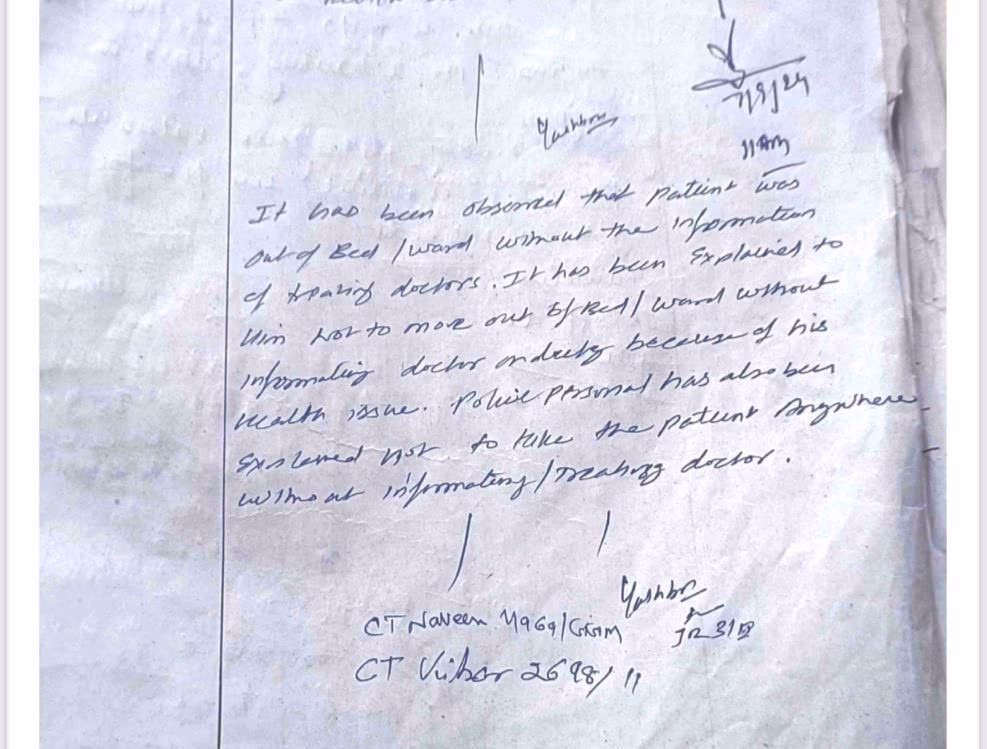 Yashbir
7/9/24
11 AM
It has been observed that patient was
out of Bed / ward without the information
of treating doctors. It has been Explained to
him not to move out of Bed / ward without
informating doctor on duty because of his
Health issue. Police personal has also been
Explained not to take the patient Anywhere
without informating / Treating doctor.
Yashbir
CT Naveen 4969/
CT 2698/11